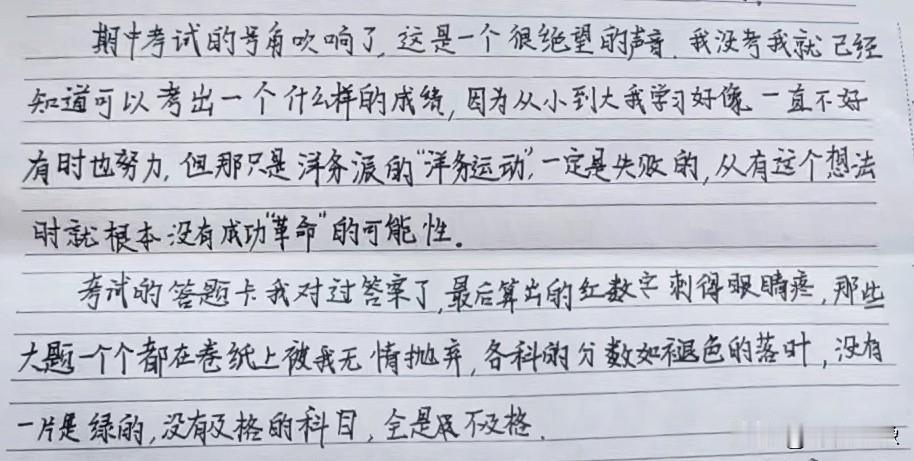 期中考试的号角吹响了,这是一个很绝望的声音.我没考我就已经
知道可以考出一个什么样的成绩,因为从小到大我学习好像一直不好
有时也努力,但那只是洋务派的“洋务运动”,一定是失败的,从有这个想法
时就根本没有成功“革命”的可能性。
考试的答题卡我对过答案了,最后算出的红数字刺得眼睛疼,那些
大题一个个都在卷纸上被我无情抛弃,各科的分数如褪色的落叶,没有
一片是绿的,没有及格的科目,全是不及格.